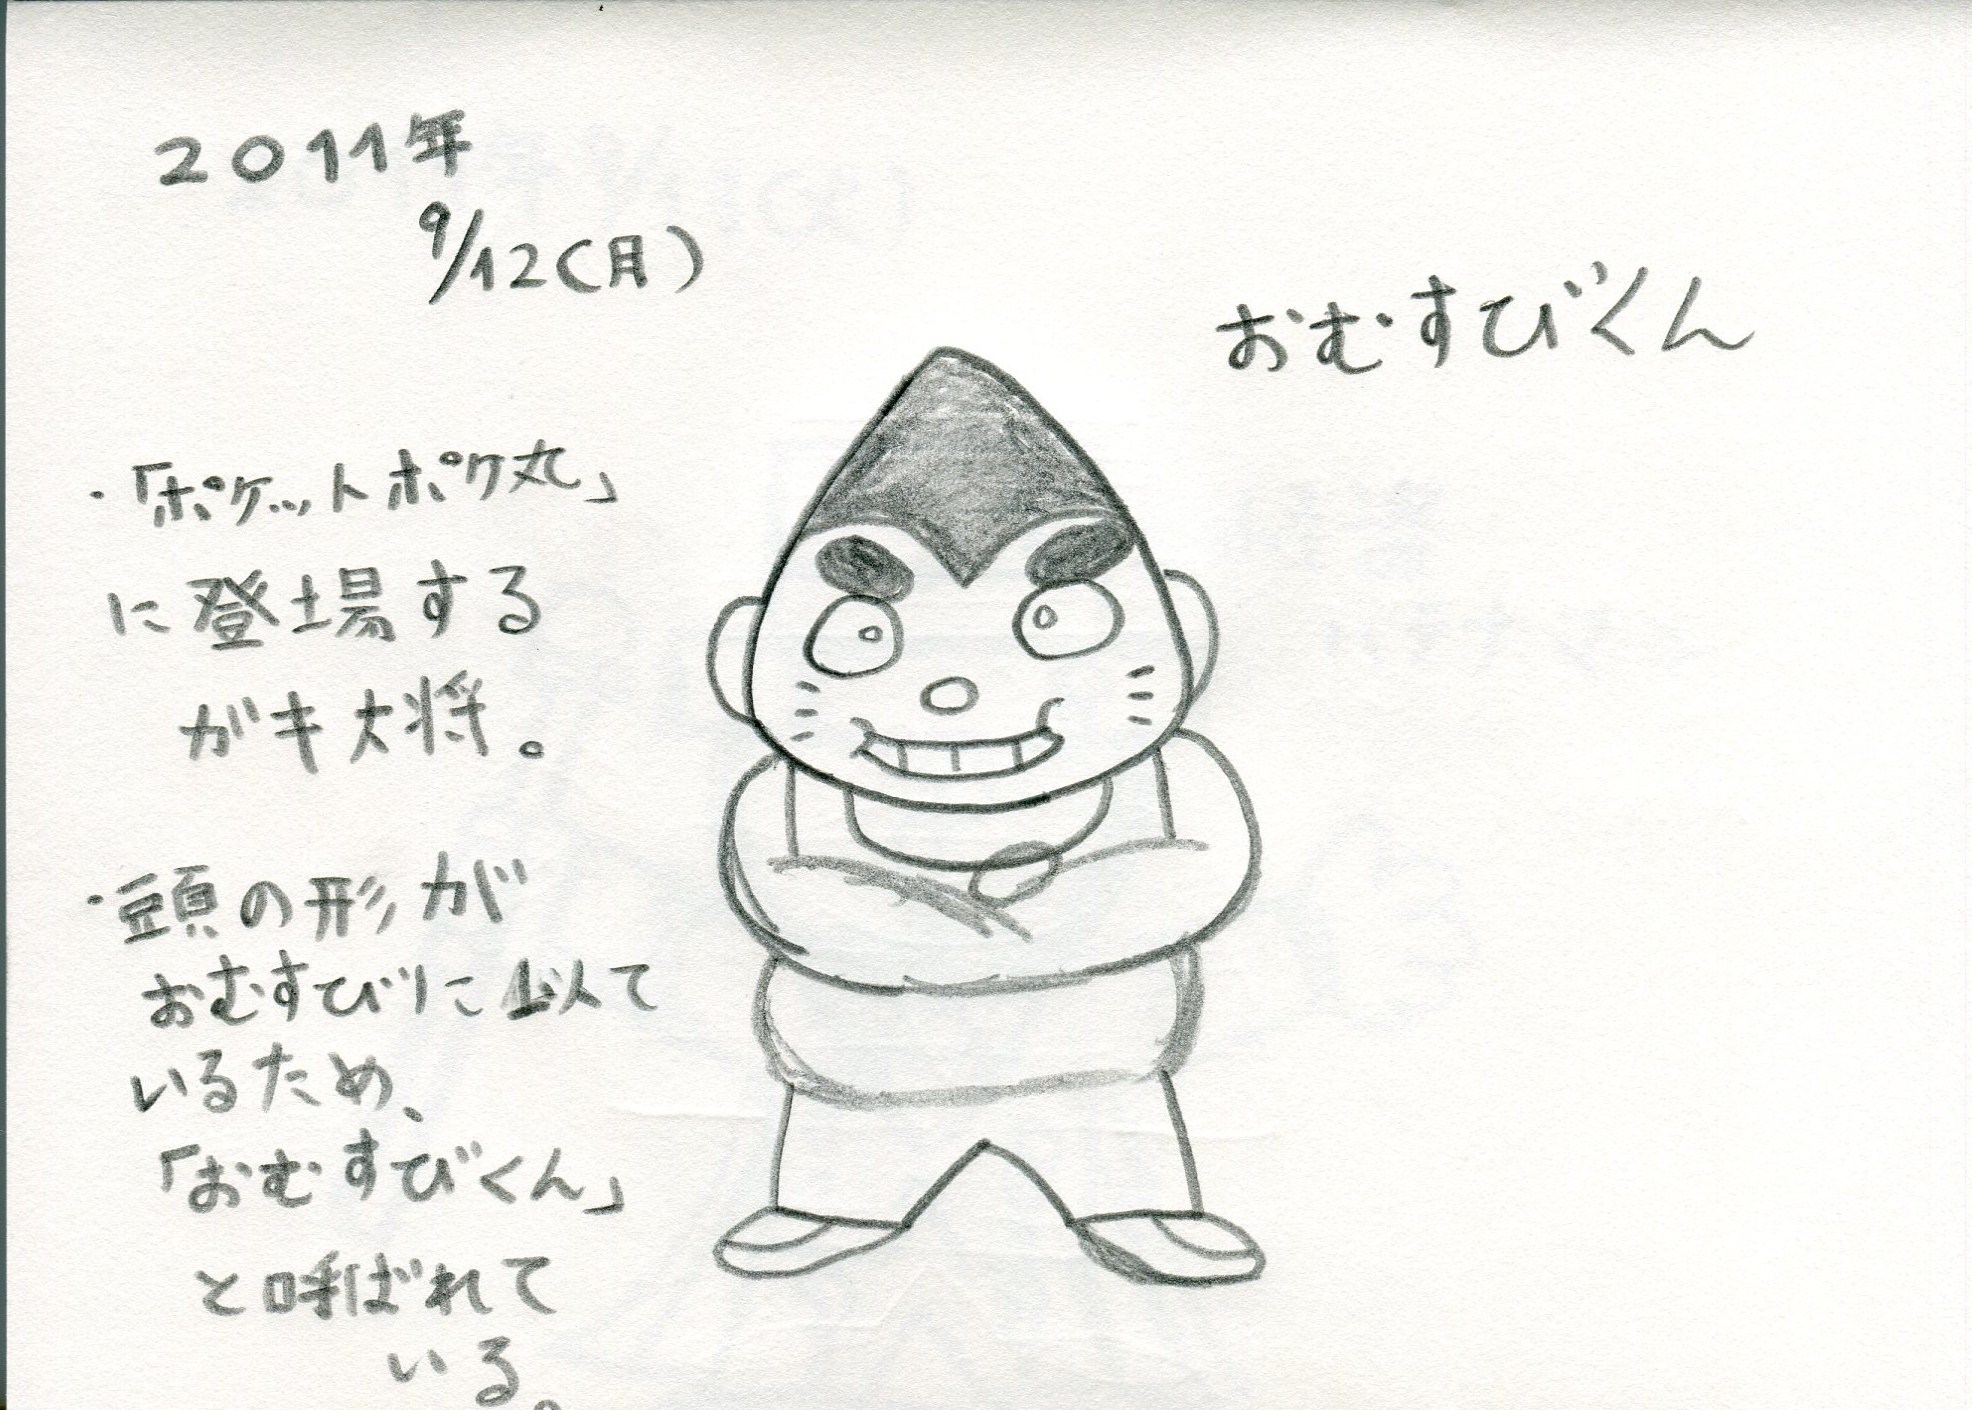 2011年
9/12(月)
おむすびくん
・「ポケットポケ丸」
に登場する
ガキ大将。
・頭の形が
おむすびに似て
いるため、
「おむすびくん」
と呼ばれて
いる。